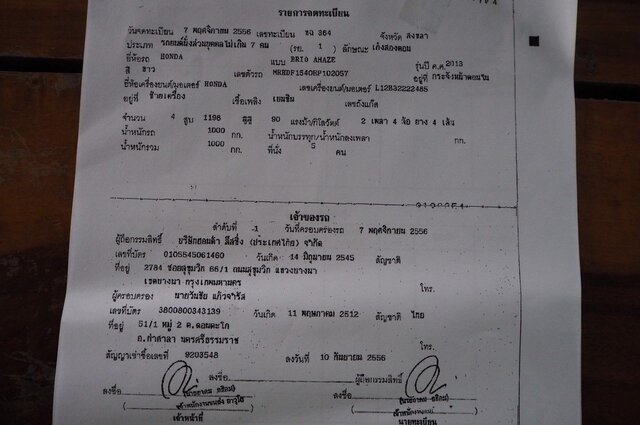 รายการจดทะเบียน
วันจดทะเบียน 7 พฤศจิกายน 2556 เลขทะเบียน 364 จังหวัด สงขลา
ประเภท รถยนต์นั่งส่วนบุคคลไม่เกิน 7 คน (รย. 1) ลักษณะ เก๋งสองตอน
ยี่ห้อรถ HONDA แบบ BRIO AMAZE รุ่นปี ค.ศ. 2013
สี ขาว เลขตัวรถ MRHDF1540EP102057 อยู่ที่
ยี่ห้อเครื่องยนต์/มอเตอร์ HONDA เลขเครื่องยนต์/มอเตอร์ L12B32222485
อยู่ที่ เชื้อเพลิง เบนซิน เลขถังแก๊ส
จำนวน 4 สูบ 1198 ซีซี 90 แรงม้า/กิโลวัตต์ 2 เพลา 4 ล้อ ยาง 4 เส้น
น้ำหนักรถ 1000 กก. น้ำหนักบรรทุก/น้ำหนักลงเพลา กก.
น้ำหนักรวม 1000 กก. ที่นั่ง 5 คน
เจ้าของรถ
ลำดับที่ 1 วันที่ครอบครองรถ 7 พฤศจิกายน 2556
ผู้ถือกรรมสิทธิ์ บริษัทฮอนด้า ลีสซิ่ง (ประเทศไทย) จำกัด
เลขที่บัตร 0105545061460 วันเกิด 14 มิถุนายน 2545 สัญชาติ
ที่อยู่ 2784 ซอยสุขุมวิท 66/1 ถนนสุขุมวิท แขวงบางนา
เขตบางนา กรุงเทพมหานคร โทร.
ผู้ครอบครอง นายวันชัย แก้วจำรัส
เลขที่บัตร 3800800343139 วันเกิด 11 พฤษภาคม 2512 สัญชาติ ไทย
ที่อยู่ 51/1 หมู่ 2 ต.ดอนตะโก
อ.ท่าศาลา นครศรีธรรมราช โทร.
สัญญาเช่าซื้อเลขที่ 9203548 ลงวันที่ 10 กันยายน 2556
ลงชื่อ ผู้ถือกรรมสิทธิ์
ลงชื่อ ลงชื่อ
เจ้าหน้าที่ นายทะเบียน